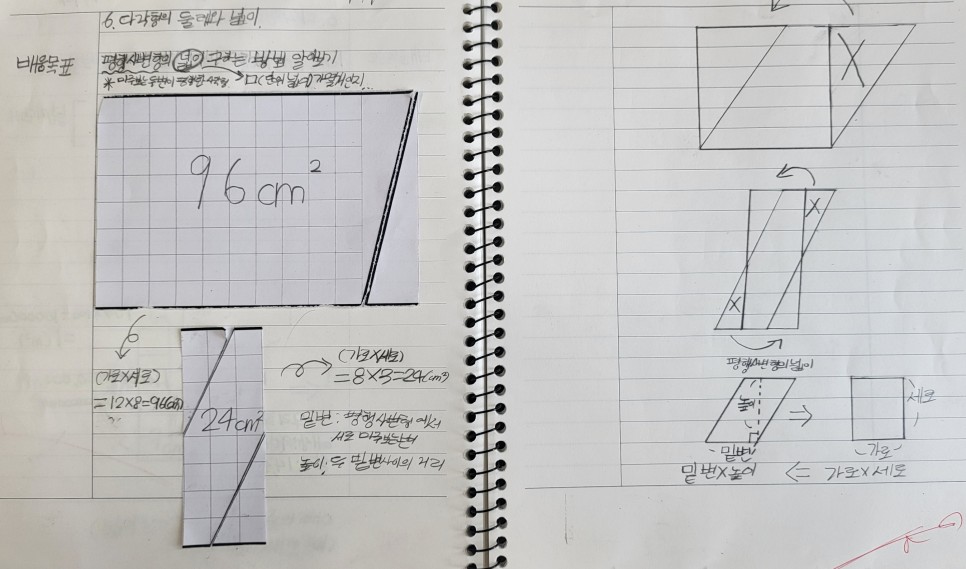 6. 다각형의 둘레와 넓이.
배움목표
평행사변형의 넓이 구하는 방법 알아보기
96cm²
(가로×세로)
=12×8=96(㎠)
24cm²
(가로×세로)
=8×3=24(cm²)
밑변: 평행사변형에서
서로 마주보는변
높이: 두 밑변사이의 거리
X
X
X
평행사변형의 넓이
높이
밑변
세로
가로
밑변×높이 ⇐ 가로×세로